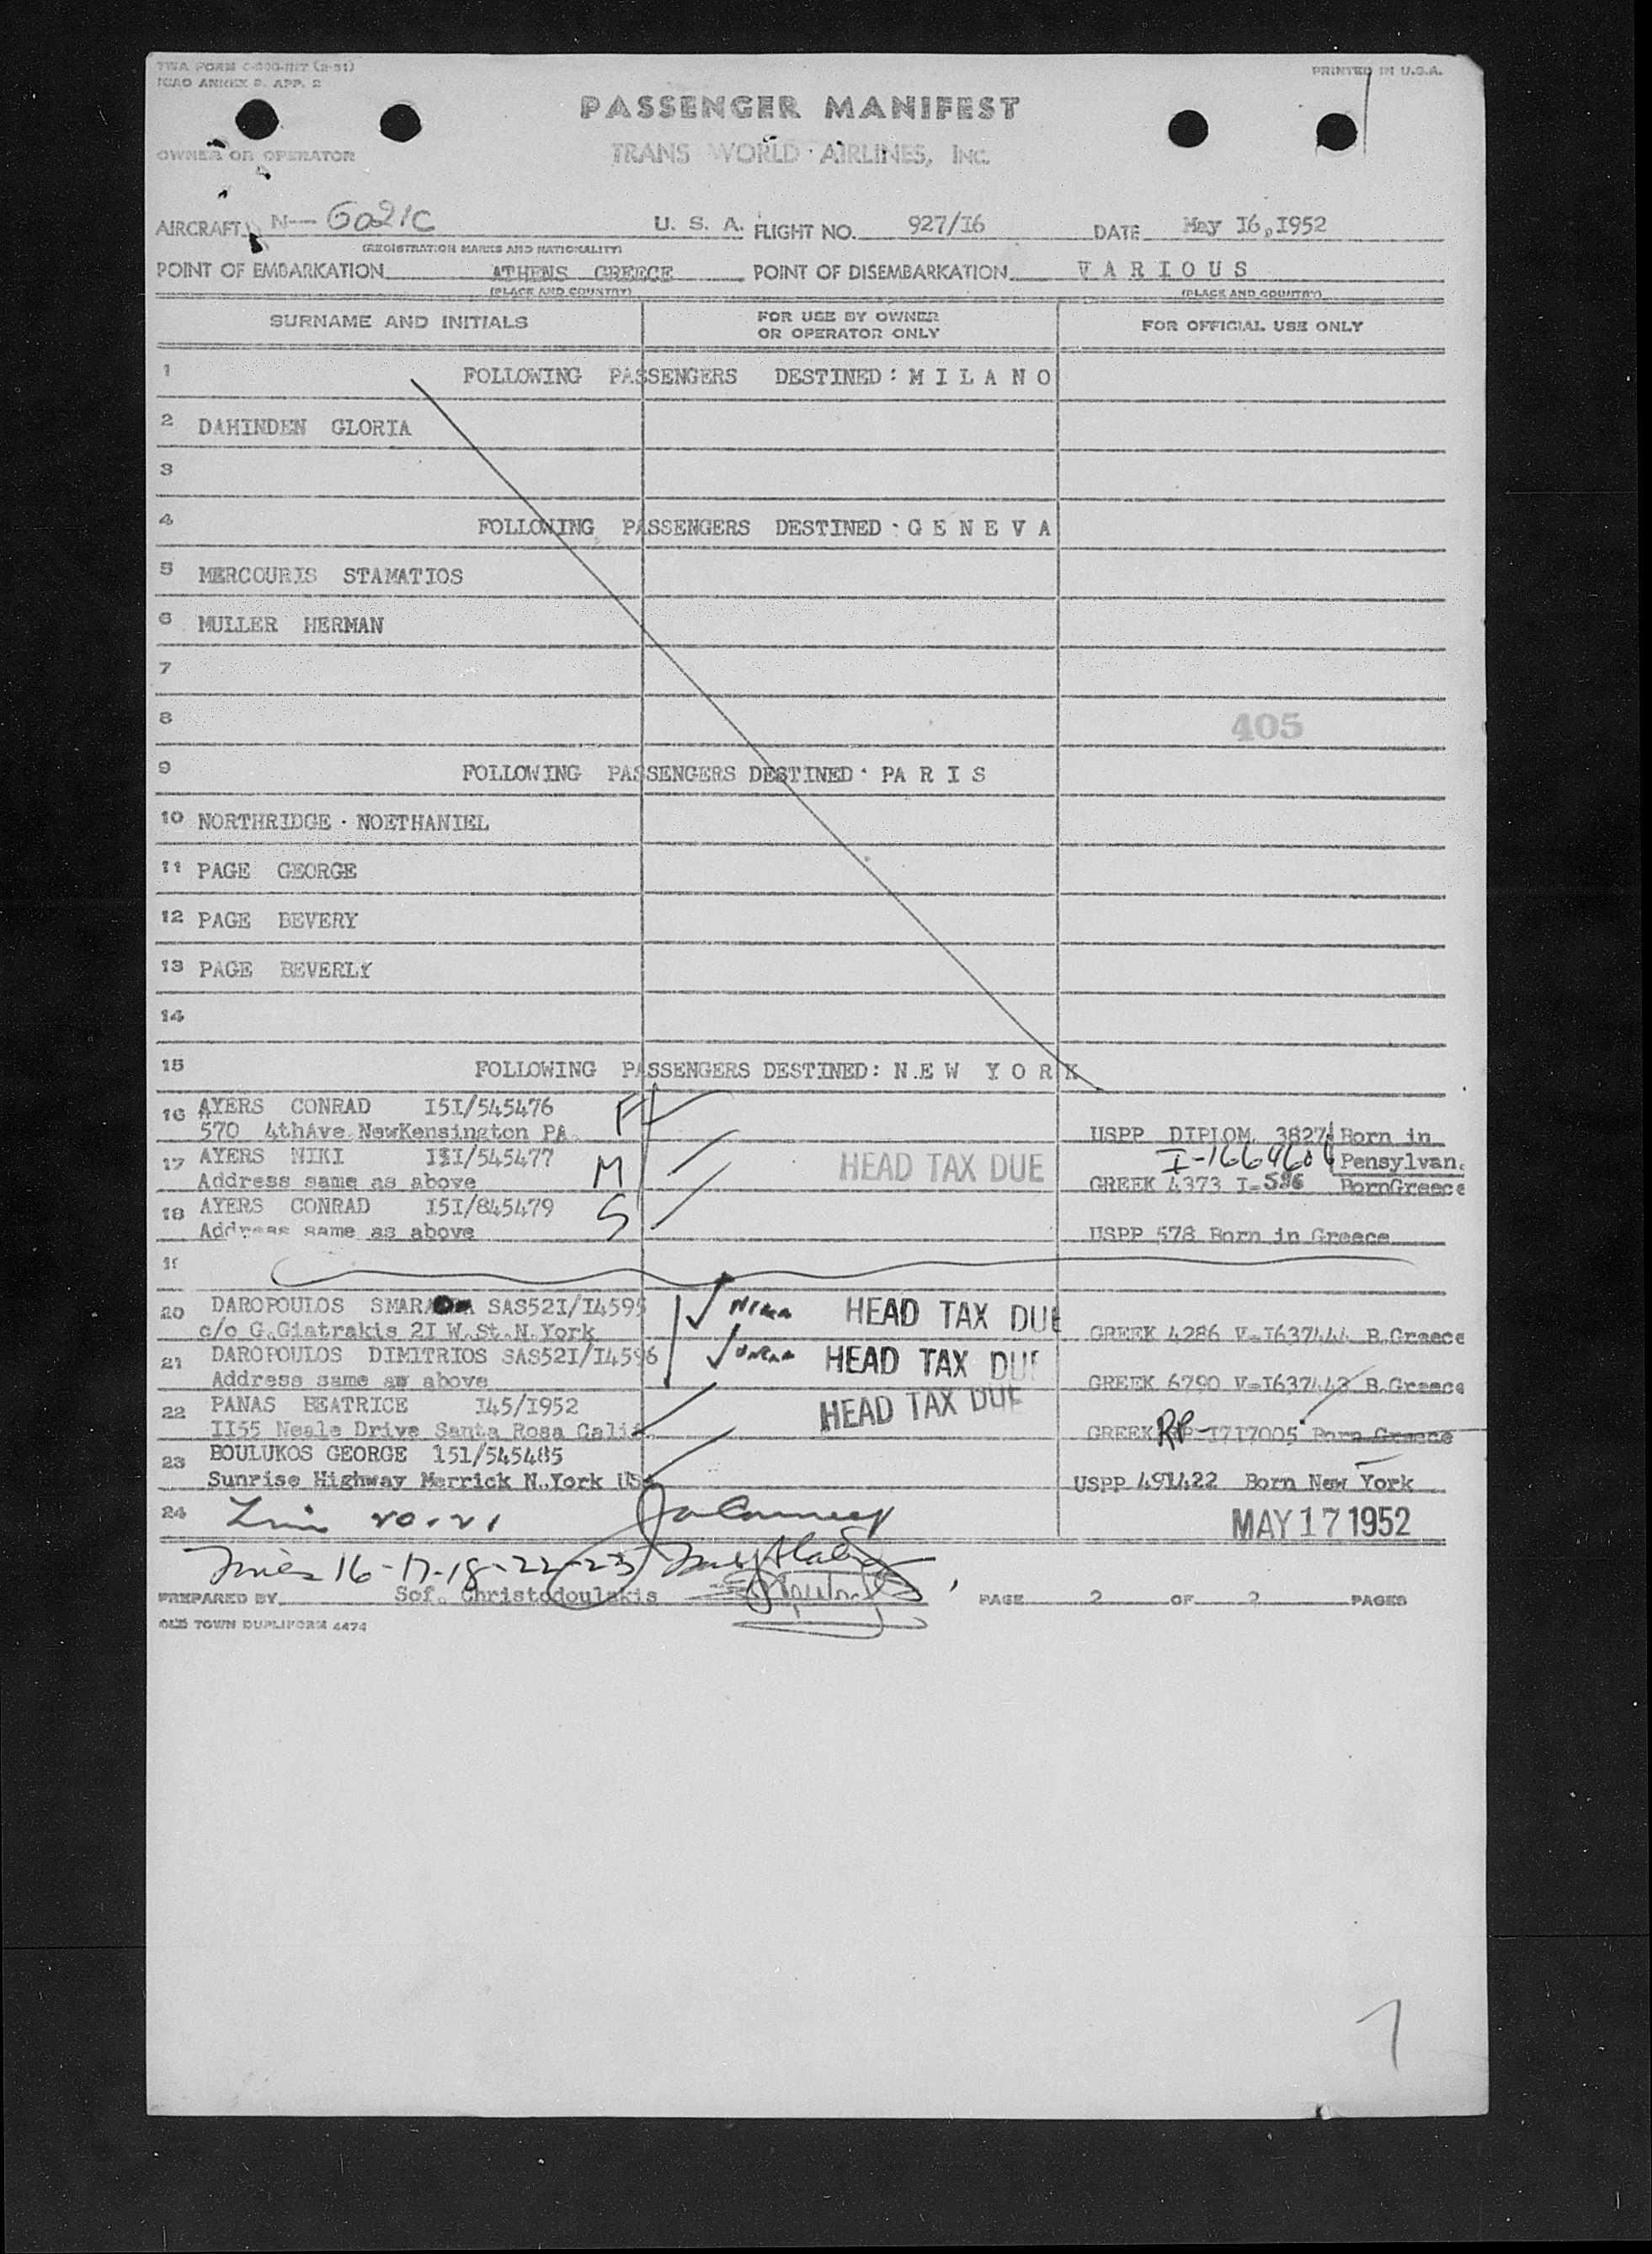 TWA FORM C-800-INT (2-51)
ICAO ANNEX 9. APP. 2
PRINTED IN U.S.A.
PASSENGER MANIFEST
OWNER OR OPERATOR TRANS WORLD AIRLINES, INC.
AIRCRAFT N— 6021C U. S. A. FLIGHT NO. 927/I6 DATE May I6,I952
(REGISTRATION MARKS AND NATIONALITY)
POINT OF EMBARKATION ATHENS GREECE POINT OF DISEMBARKATION V A R I O U S
(PLACE AND COUNTRY) (PLACE AND COUNTRY)
SURNAME AND INITIALS FOR USE BY OWNER OR OPERATOR ONLY FOR OFFICIAL USE ONLY
1 FOLLOWING PASSENGERS DESTINED: M I L A N O
2 DAHINDEN GLORIA
3
4 FOLLOWING PASSENGERS DESTINED: G E N E V A
5 MERCOURIS STAMATIOS
6 MULLER HERMAN
7
8 405
9 FOLLOWING PASSENGERS DESTINED: PA R I S
10 NORTHRIDGE NOETHANIEL
11 PAGE GEORGE
12 PAGE BEVERY
13 PAGE BEVERLY
14
15 FOLLOWING PASSENGERS DESTINED: N.E W Y O R K
16 AYERS CONRAD I5I/545476 F
570 4thAve NewKensington PA. USPP DIPLOM. 3827 Born in
17 AYERS NIKI I5I/545477 M HEAD TAX DUE I-1664604 Pensylvan.
Address same as above GREEK 4373 I-596 BornGreece
18 AYERS CONRAD I5I/845479 S
Address same as above USPP 578 Born in Greece
19
20 DAROPOULOS SMARA SAS52I/I4595 HEAD TAX DUE
c/o G.Giatrakis 2I W.St.N.York GREEK 4286 V-I637444 B.Greece
21 DAROPOULOS DIMITRIOS SAS52I/I4596 HEAD TAX DUE
Address same as above GREEK 6790 V-I637443 B.Greece
22 PANAS BEATRICE I45/I952 HEAD TAX DUE
II55 Neale Drive Santa Rosa Calif. GREEK RP-I7I7005 Born Greece
23 BOULUKOS GEORGE 151/545485
Sunrise Highway Merrick N.York USA USPP 491422 Born New York
24 20.21 MAY 17 1952
16-17-18-22-23
PREPARED BY Sof. Christodoulakis PAGE 2 OF 2 PAGES
OLD TOWN DUPLIFORM 4474